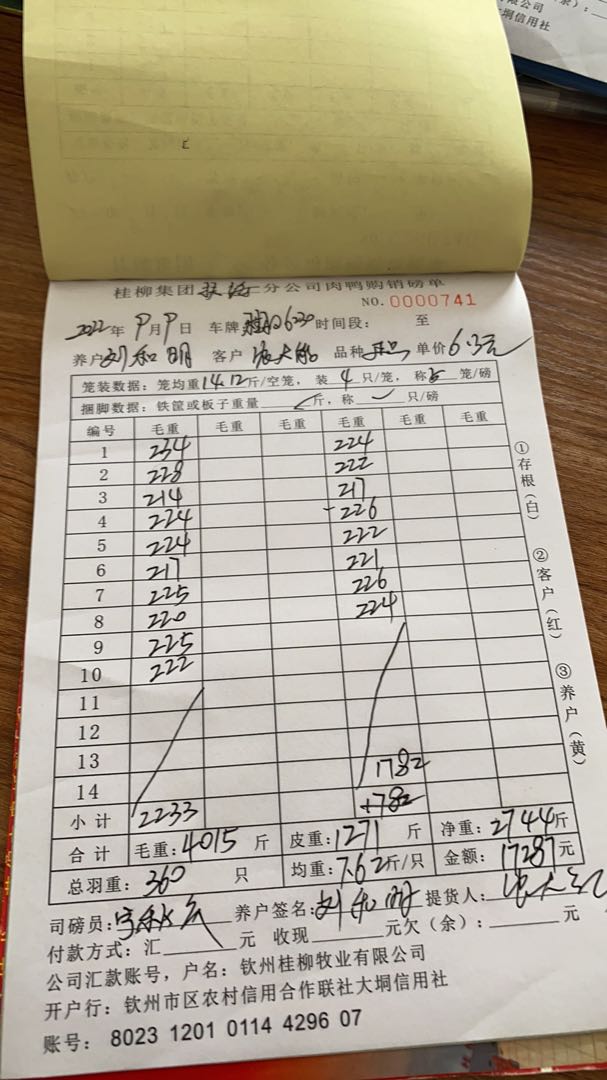 公司
大垌信用社
桂柳集团 分公司肉鸭购销磅单
NO.0000741
2022年9月9日 车牌 6230 时间段： 至
养户 刘和明 客户 张大 品种 单价 6.3元
笼装数据：笼均重14.12斤/空笼，装 4 只/笼，称5笼/磅
捆脚数据：铁筐或板子重量 斤，称 只/磅
编号 毛重 毛重 毛重 毛重 毛重 毛重
1 234 224
2 228 222
3 214 217
4 224 226
5 224 222
6 217 221
7 225 226
8 220 224
9 225
10 222
11
12
13 1782
14
小计 2233 1782
合计 毛重：4015 斤 皮重：1271 斤 净重：2744斤
总羽重：360 只 均重：7.62斤/只 金额：17287元
司磅员： 养户签名：刘和明 提货人：
付款方式：汇 元 收现 元欠（余）： 元
公司汇款账号，户名：钦州桂柳牧业有限公司
开户行：钦州市区农村信用合作联社大垌信用社
账号：8023 1201 0114 4296 07
①存根（白）
②客户（红）
③养户（黄）